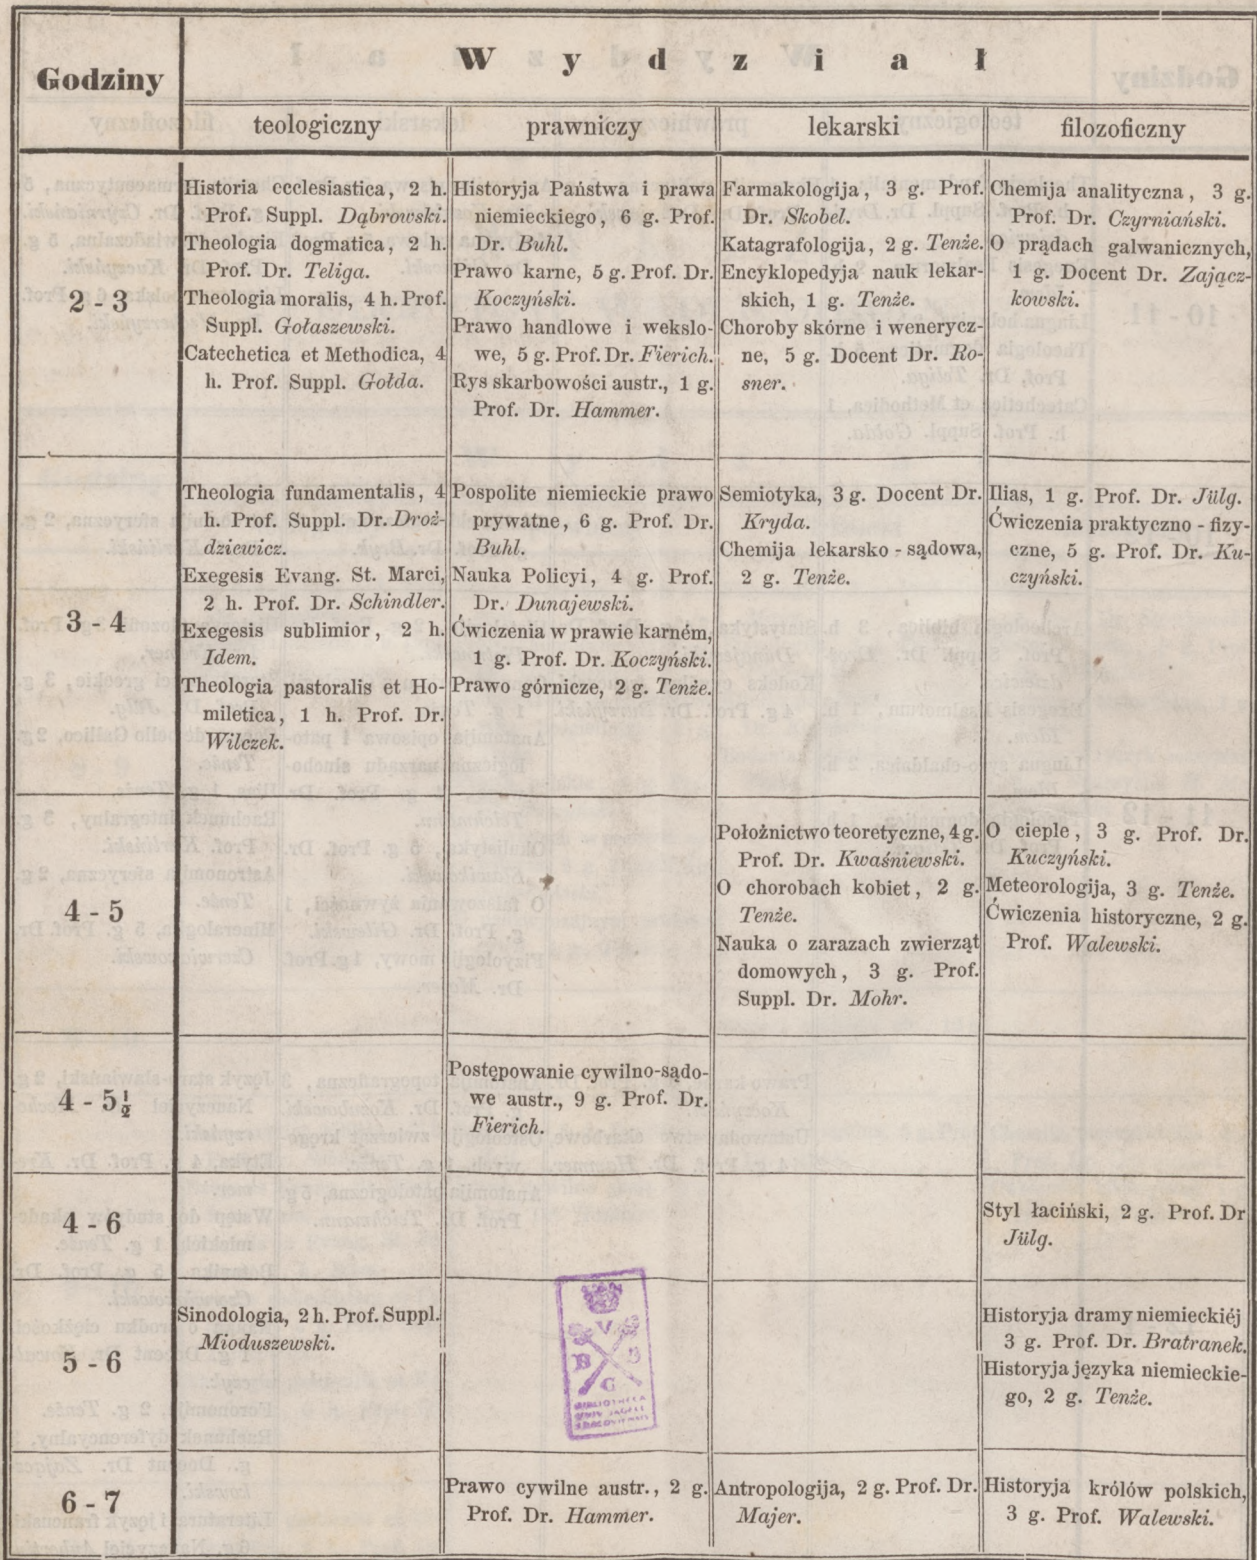 Godziny
W y d z i a ł
teologiczny
prawniczy
lekarski
filozoficzny
2 - 3
Historia ecclesiastica, 2 h.
Prof. Suppl. Dąbrowski.
Theologia dogmatica, 2 h.
Prof. Dr. Teliga.
Theologia moralis, 4 h. Prof.
Suppl. Gołaszewski.
Catechetica et Methodica, 4
h. Prof. Suppl. Gołda.
Historyja Państwa i prawa
niemieckiego, 6 g. Prof.
Dr. Buhl.
Prawo karne, 5 g. Prof. Dr.
Koczyński.
Prawo handlowe i wekslo-
we, 5 g. Prof. Dr. Fierich.
Rys skarbowości austr., 1 g.
Prof. Dr. Hammer.
Farmakologija, 3 g. Prof.
Dr. Skobel.
Katagrafologija, 2 g. Tenże.
Encyklopedyja nauk lekar-
skich, 1 g. Tenże.
Choroby skórne i wenerycz-
ne, 5 g. Docent Dr. Ro-
sner.
Chemija analityczna, 3 g.
Prof. Dr. Czyrniański.
O prądach galwanicznych,
1 g. Docent Dr. Zającz-
kowski.
3 - 4
Theologia fundamentalis, 4
h. Prof. Suppl. Dr. Droż-
dziewicz.
Exegesis Evang. St. Marci,
2 h. Prof. Dr. Schindler.
Exegesis sublimior, 2 h.
Idem.
Theologia pastoralis et Ho-
miletica, 1 h. Prof. Dr.
Wilczek.
Pospolite niemieckie prawo
prywatne, 6 g. Prof. Dr.
Buhl.
Nauka Policyi, 4 g. Prof.
Dr. Dunajewski.
Ćwiczenia w prawie karném,
1 g. Prof. Dr. Koczyński.
Prawo górnicze, 2 g. Tenże.
Semiotyka, 3 g. Docent Dr.
Kryda.
Chemija lekarsko - sądowa,
2 g. Tenże.
Ilias, 1 g. Prof. Dr. Jülg.
Ćwiczenia praktyczno - fizy-
czne, 5 g. Prof. Dr. Ku-
czyński.
4 - 5
Położnictwo teoretyczne, 4 g.
Prof. Dr. Kwaśniewski.
O chorobach kobiet, 2 g.
Tenże.
Nauka o zarazach zwierząt
domowych, 3 g. Prof.
Suppl. Dr. Mohr.
O cieple, 3 g. Prof. Dr.
Kuczyński.
Meteorologija, 3 g. Tenże.
Ćwiczenia historyczne, 2 g.
Prof. Walewski.
4 - 5½
Postępowanie cywilno-sądo-
we austr., 9 g. Prof. Dr.
Fierich.
4 - 6
Styl łaciński, 2 g. Prof. Dr
Jülg.
5 - 6
Sinodologia, 2 h. Prof. Suppl.
Mioduszewski.
V
B G
G
Historyja dramy niemieckiéj
3 g. Prof. Dr. Bratranek.
Historyja języka niemieckie-
go, 2 g. Tenże.
6 - 7
Prawo cywilne austr., 2 g.
Prof. Dr. Hammer.
Antropologija, 2 g. Prof. Dr.
Majer.
Historyja królów polskich,
3 g. Prof. Walewski.